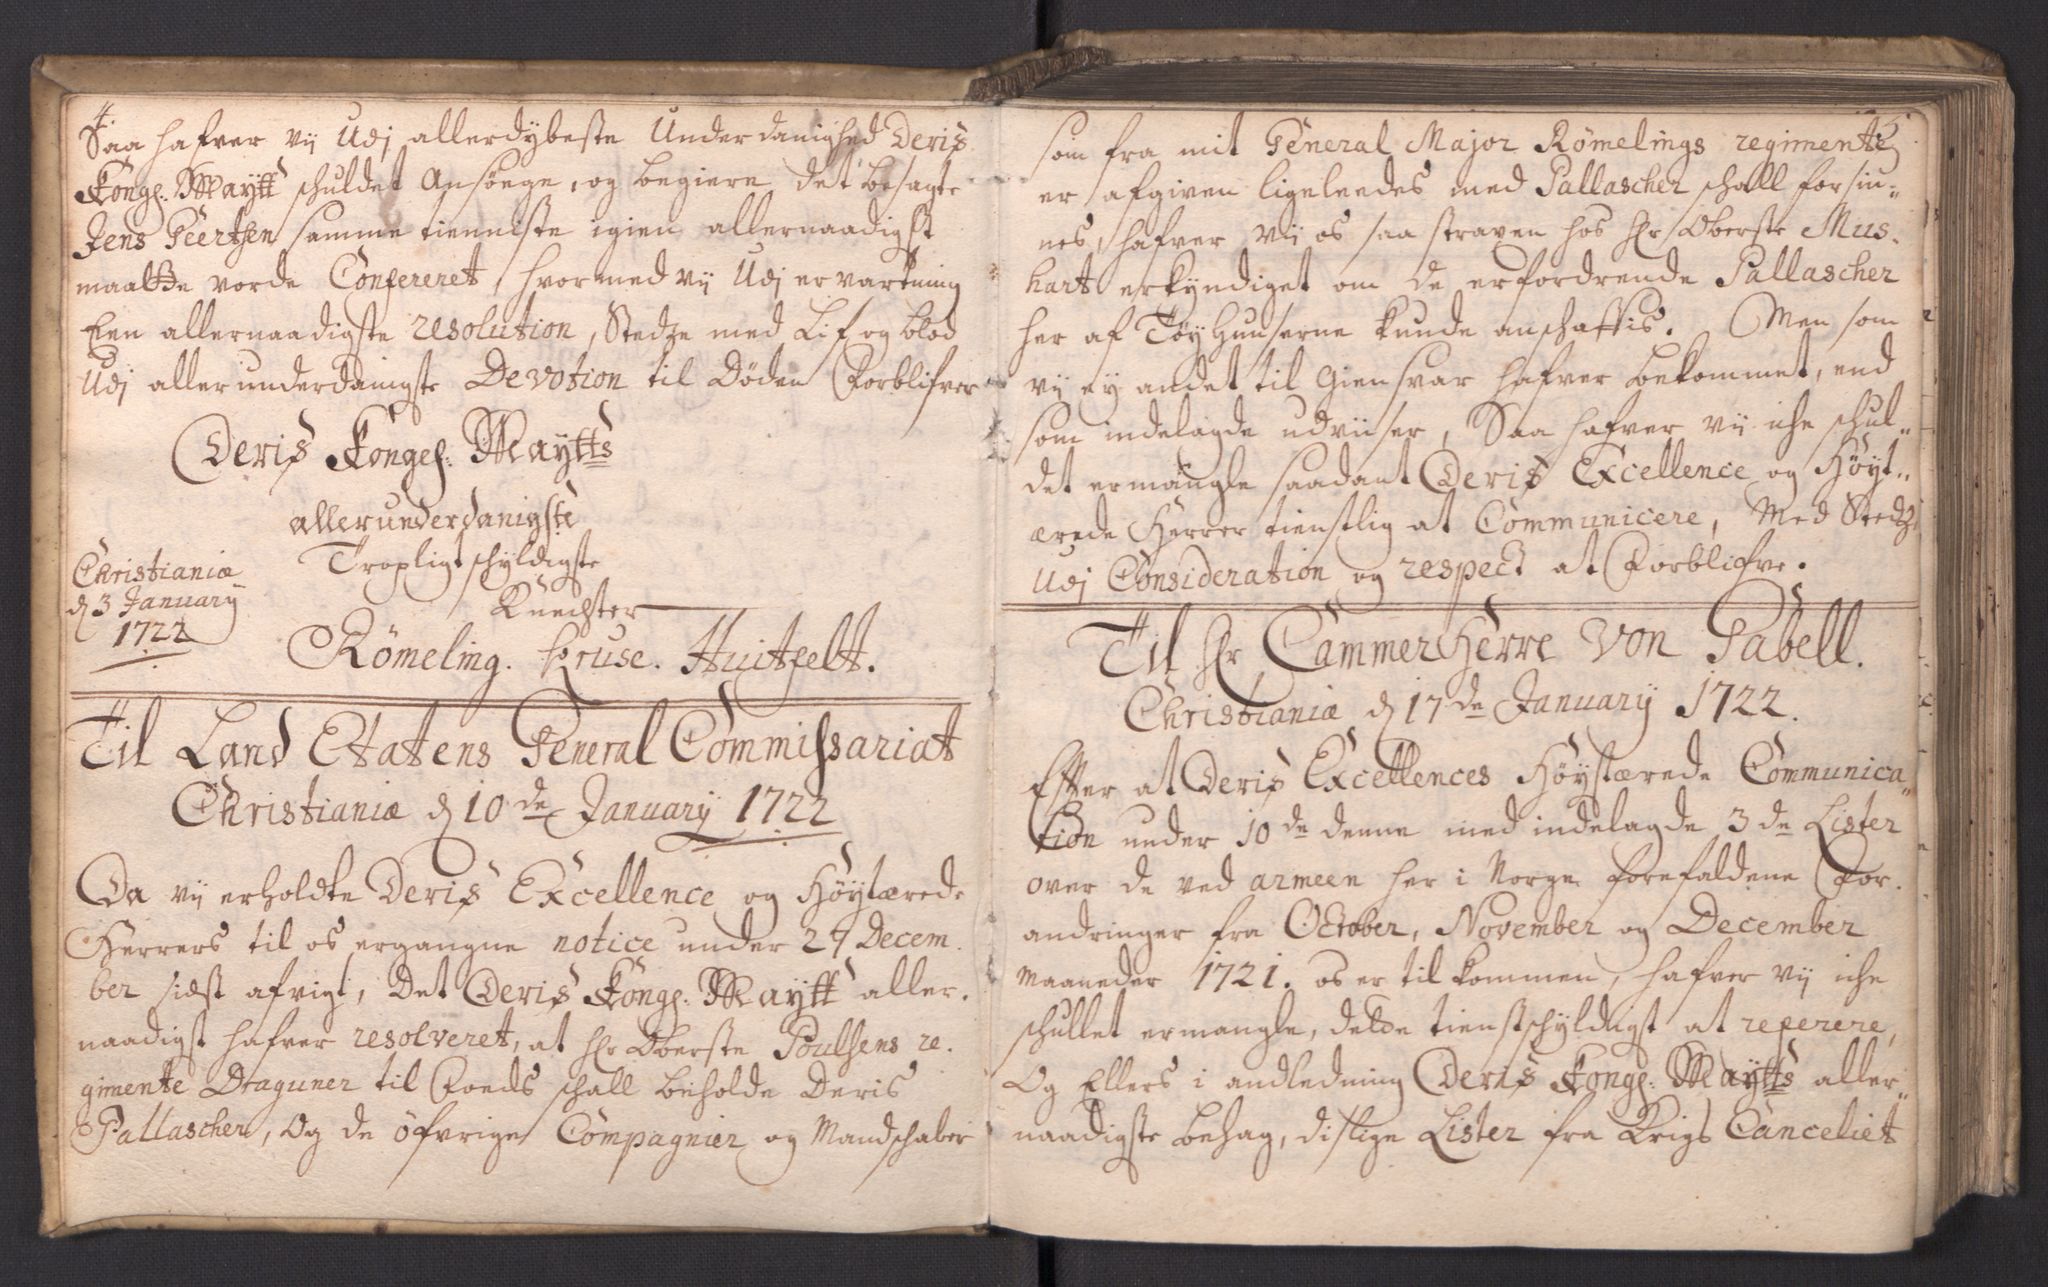 4.
Saa hafver vij Udj allerdybeste Underdanighed Deris
Kongl: Maytt schuldet Ansöege, og begiere, det besagte
Jens Peertsen samme tienniste igien allernaadigst
maatte vorde Confereret, hvormed vij Udj ervartning
Een allernaadigste resolution, Stedze med Lif og blod
Udj allerunderdanigste Devotion til Döden Forblifver
Deris Kongel: Maytts
allerunderdanigste
Tropligtschyldigste
Knechter
Christianiæ
d 3 January
1722
Römeling. Kruse. Huitfelt.
Til Land Etatens General Commissariat
Christianiæ d 10de January 1722
Da vij erholdte Deris Excellence og Höytærede
Herrers til os ergangne notice under 27 Decem-
ber sidst afvigt, Det Deris Kongl: Maytt aller-
naadigst hafver resolveret, at Hr Oberste Poulsens re-
gimente Draguner til Foeds schall beholde Deris
Pallascher, Og de öfvrige Compagnier og Mandschaber
5
som fra mit General Major Römelings regimente
er afgiven ligeleedes med Pallascher schall forsiu-
nes, hafver vij os saa straxen hos Hr Oberste Mus-
hart erkyndiget om de erfordrende Pallascher
her af Töyhuuserne kunde anschaffis. Men som
vij ey andet til Giensvar hafver bekommet, end
som indelagde udviiser, Saa hafver vij iche schul-
det ermangle saadant Deris Excellence og Höyt-
ærede Herrer tienstlig at Communicere, Med Stedze
Udj Consideration og respect at Forblifve.
Til Hr Cammer Herre Von Gabell.
Christianiæ d 17de January 1722.
Efter at Deris Excellences Höystærede Communica-
tion under 10de denne med indelagde 3de Lister
over de ved armeen her i Norge forefaldene For-
andringer fra October, November og December
Maaneder 1721. os er tilkommen, hafver vij iche
schullet ermangle, dette tienstschyldigst at referere,
Og Ellers i andledning Deris Kongl: Maytts aller-
naadigste behag, dislige Lister fra Krigs Canceliet